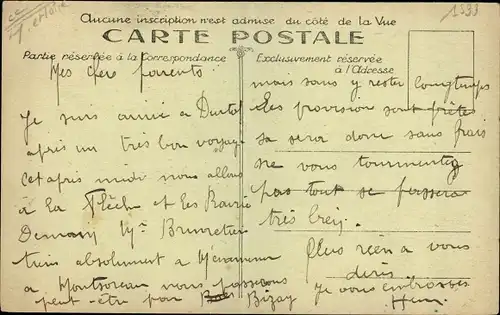 Aucune inscription n'est admise du côté de la Vue
CARTE POSTALE
Partie réservée à la Correspondance
Exclusivement réservée
à l'Adresse
Mes chers parents
Je suis arrivé à Durtal
après un très bon voyage
cet après midi nous allons
à La Flèche et les
Demain Mr
absolument à
à Montsoreau nous passerons
peut-être par Bizay
mais sans y rester longtemps
Les provision sont prêtes
sa sera donc sans frais
ne vous tourmentez
pas tout se passera
très bien.
Plus rien a vous
dire
je vous embrasse
Henri